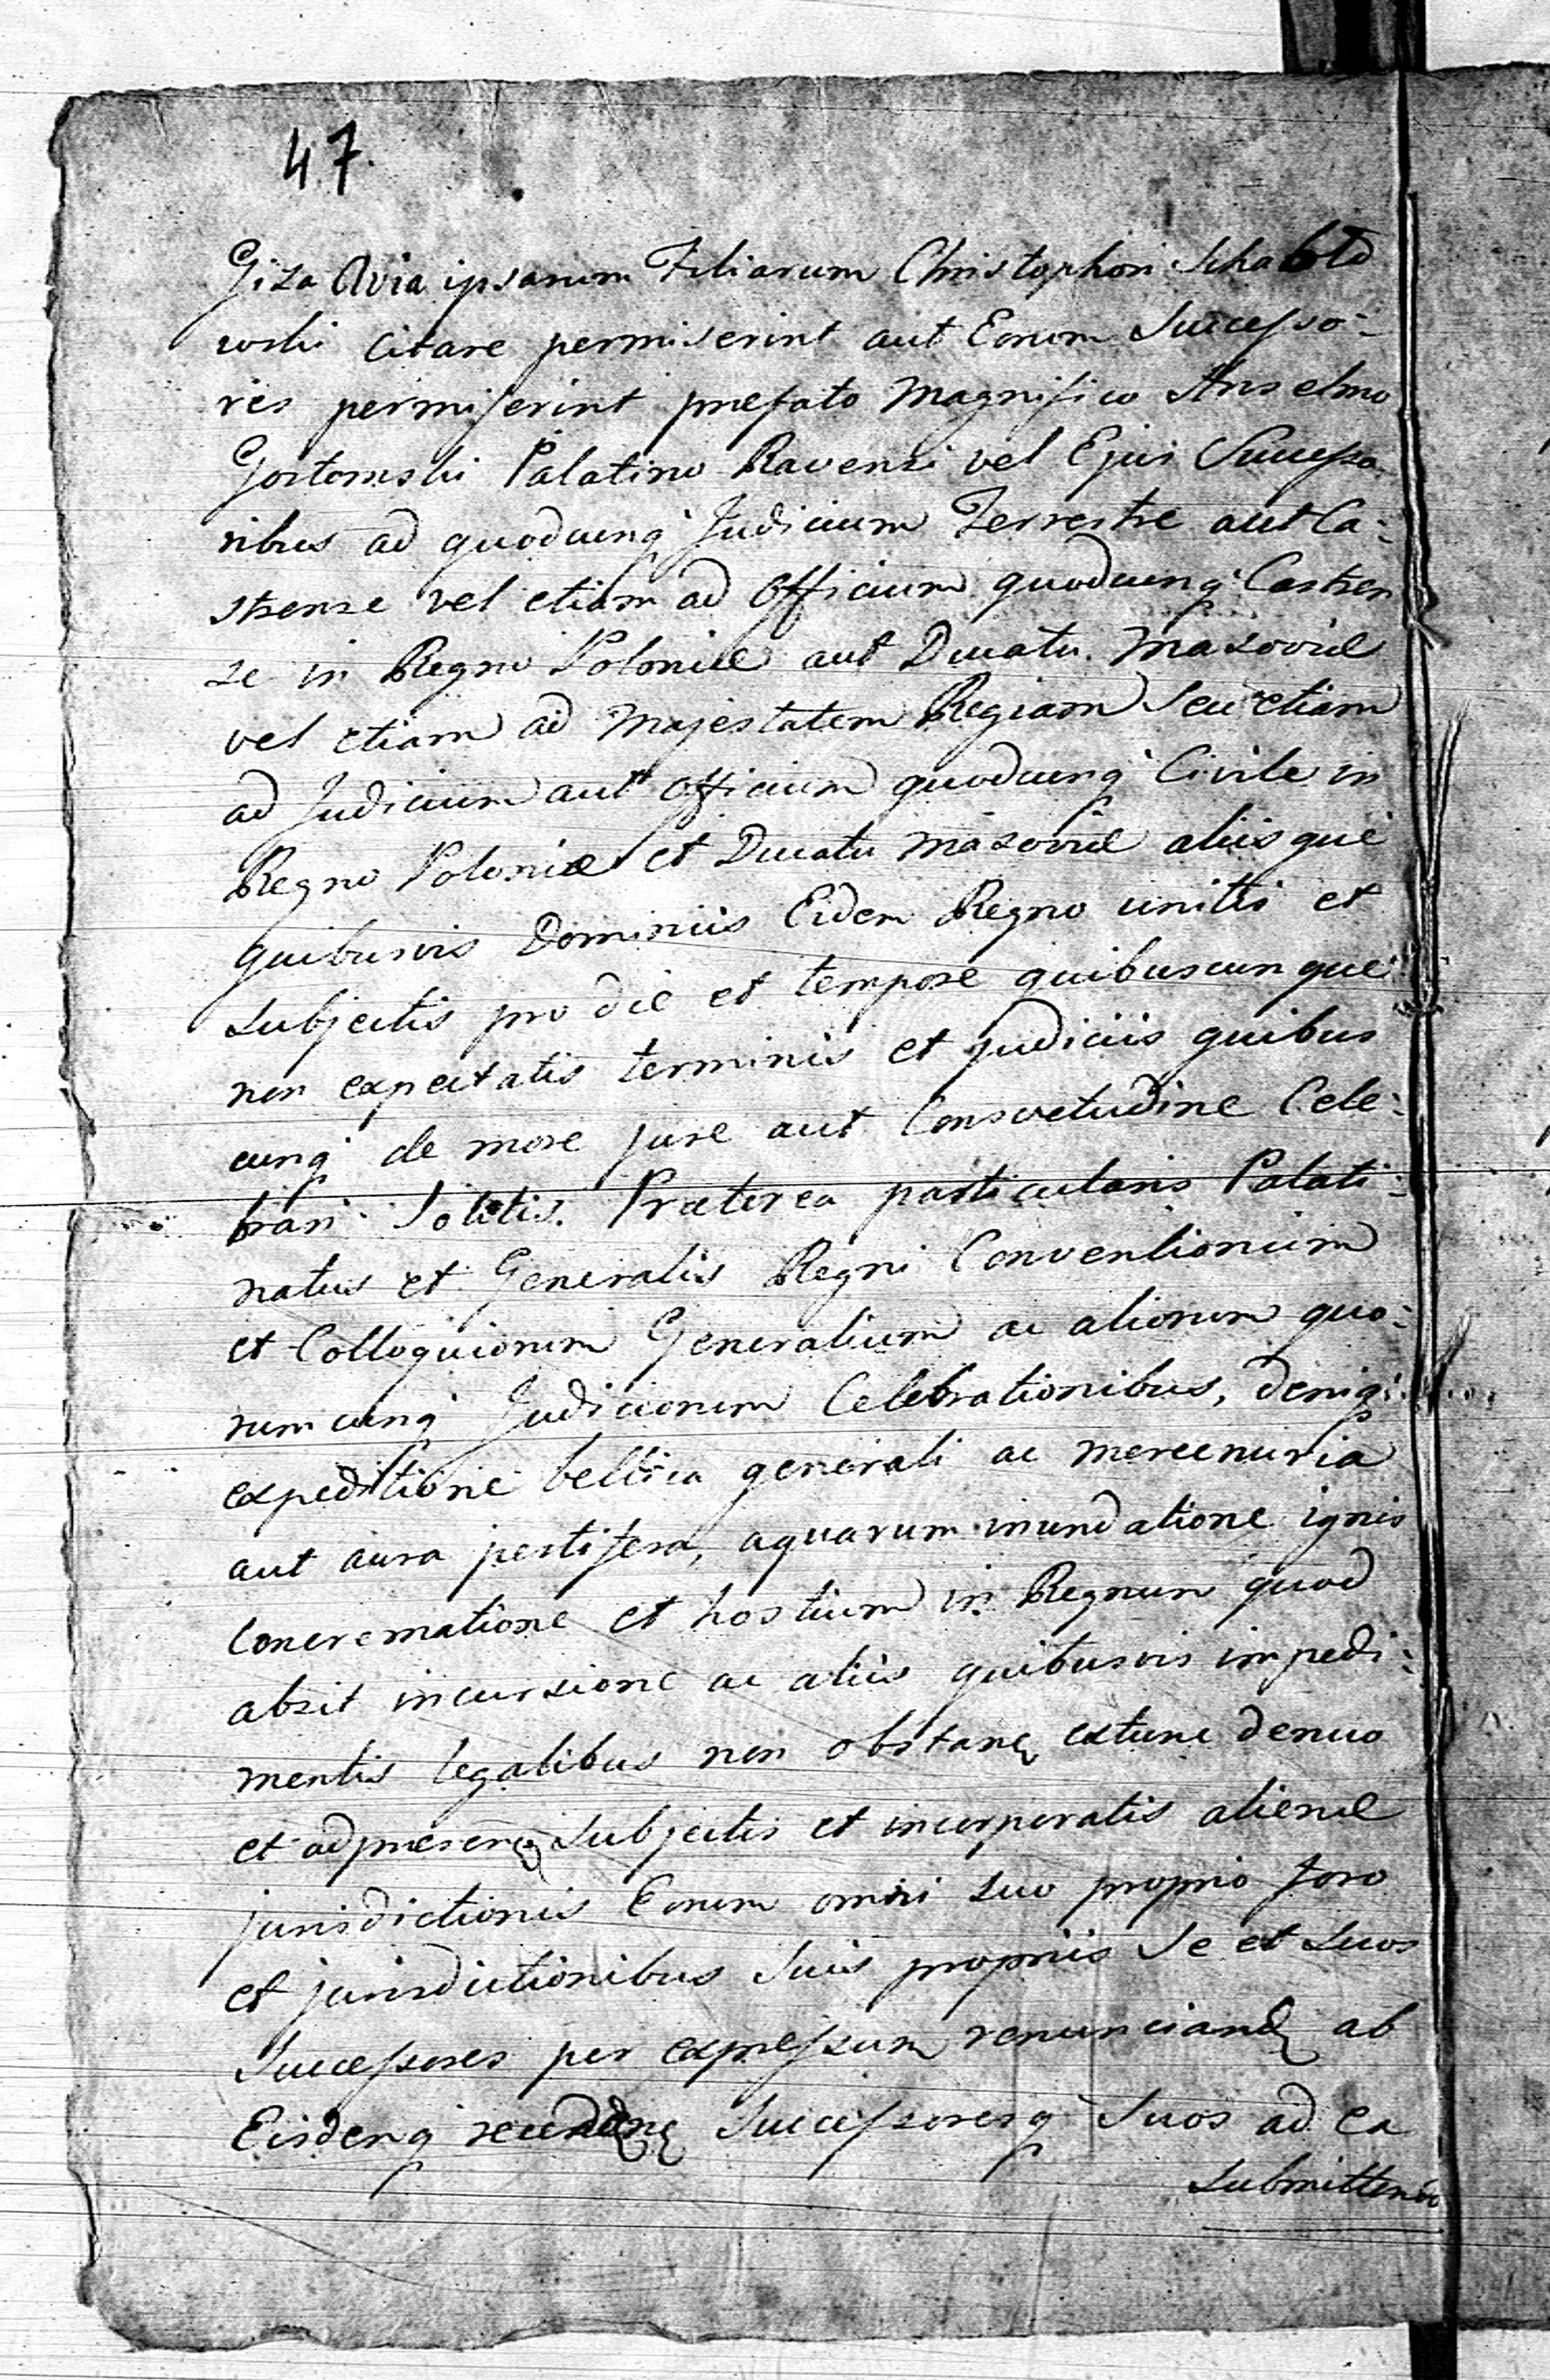 47.
Giza Avia ipsarum Filiarum Christophori Schabld
worski citare permiserint aut Eorum Successo-
res permiserint prefato Magnifico Anselmo
Gostomski Palatino Ravensi vel Ejus Successo
ribus ad quodcunq Judicium Terrestre aut Ca-
strense vel etiam ad Officium quodcunq Castren
se in Regno Poloniæ aut Ducatu Masoviæ
vel etiam ad Majestatem Regiam Seu etiam
ad Judicium aut officium quodcunq Civile in
Regno Poloniæ et Ducatu Masoviæ aliisque
quibusvis Dominiis Eidem Regno unitis et
subjectis pro die et tempore quibuscunque
non expectatis terminis et judiciis quibus
cunq de more jure aut Consvetudine Cele-
brari Solitis. Præterea particularis Palati-
natus et Generalis Regni Conventionum
et Colloquiorum Generalium ac aliorum quo-
rumcunq Judiciorum Celebrationibus, deniq
expeditione bellica generali ac mercenaria
aut aura pestifera, aquarum inundatione ignis
Concrematione et hostium in Regnum quod
absit incursione ac aliis quibusvis impedi-
mentis legalibus non obstanȩ extunc denuo
et adpræsenȩ subjectis et incorporatis alienæ
jurisdictionis Eorum omni suo proprio foro
et jurisdictionibus Suis propriis Se et Suos
Successores per expressum renunciandȩ ab
Eisdemq Successoresq Suos ad ea
submittendo